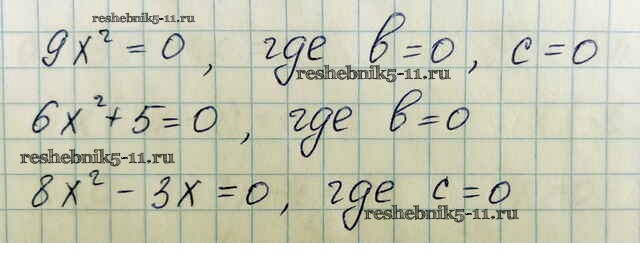 reshebnik5-11.ru
9x² = 0, где в=0, с=0
reshebnik5-11.ru
6x²+5=0, где в=0
reshebnik5-11.ru
8x² - 3x = 0, где с=0
reshebnik5-11.ru